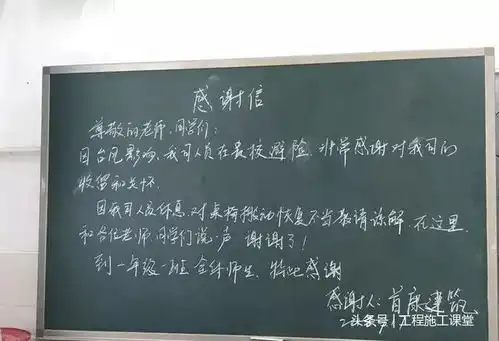 感谢信
尊敬的老师、同学们：
因台风影响，我司人员在贵校避险，非常感谢对我司们
收留和关怀。
因我司人员休息，对桌椅搬动恢复不当敬请谅解，在这里
和各位老师、同学们说一声 谢谢了！
到一年级一班全体师生，特此感谢
感谢人：首康建筑
头条号 / 工程施工课堂